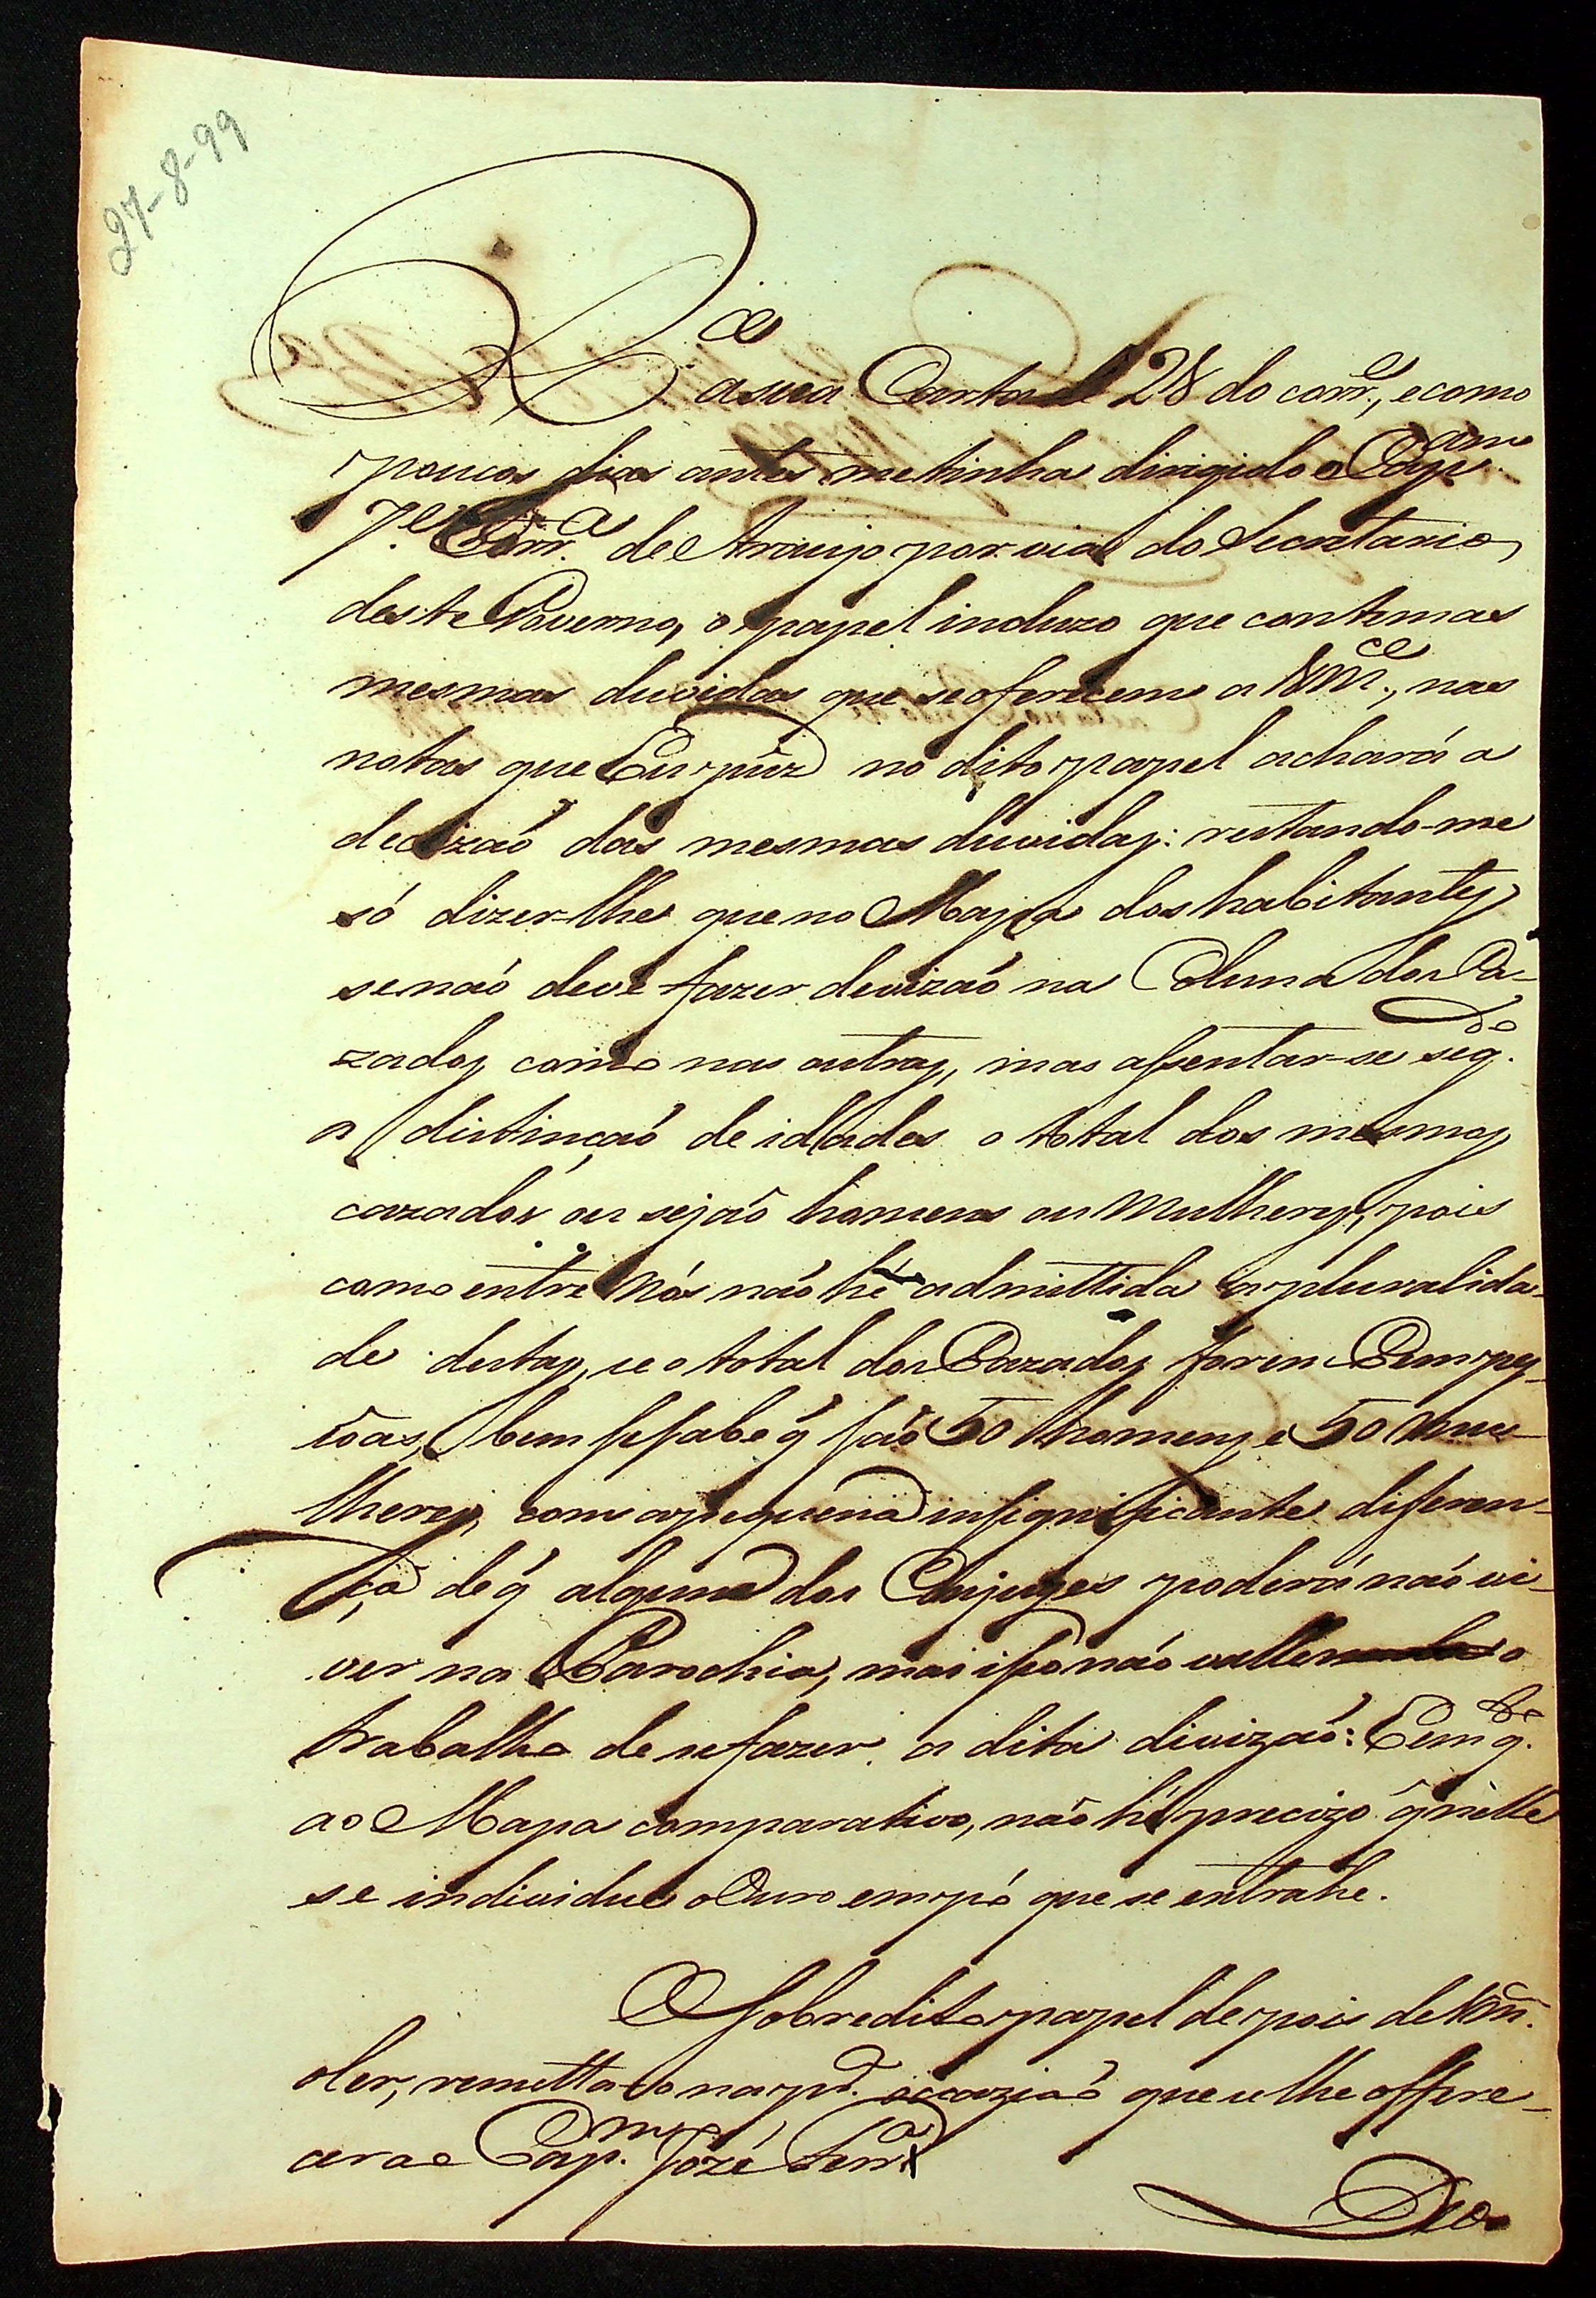 27-8-99
R.ce a sua Carta de 28 do corr.e, e como
poucos dias antes me tinha dirigido o Cap.am
J.e Corr.a de Araujo por via do Secretario
deste Governo, o papel incluzo que contem as
mesmas duvidas que se oferecem a Vm.ce, nas
notas que Eu puz no dito papel achará a
decizaõ das mesmas duvidas: restando-me
só dizer-lhe que no Mapa dos habitantes
se naõ deve fazer devizaõ na Coluna dos Ca-
zados como nas outras, mas assentar-se seg.do
a distinçaõ de idades o total dos mesmos
cazados ou sejaõ homens ou Mulheres, pois
como entre Nós naõ hé admittida a pluralida-
de destas, se o total dos Cazados forem Cem pes-
soas, bem se sabe q̃ saõ 50 homens, e 50 mu-
lheres, com a pequena insignificante diferen-
ça de q̃ algum dos Conjuges poderá naõ vi-
ver na Parochia, mas isso naõ valle o
trabalho de se fazer a dita divizaõ: E em q.to
ao Mapa comparativo, naõ hé precizo q̃ nelle
se individue o Ouro em pó que se extrahe.
O sobredito papel depois de Vm.
o ler, remetta-o na pr.a occaziaõ que se lhe offre-
cer ao Cap.m Jozé Ferr.a
Deos